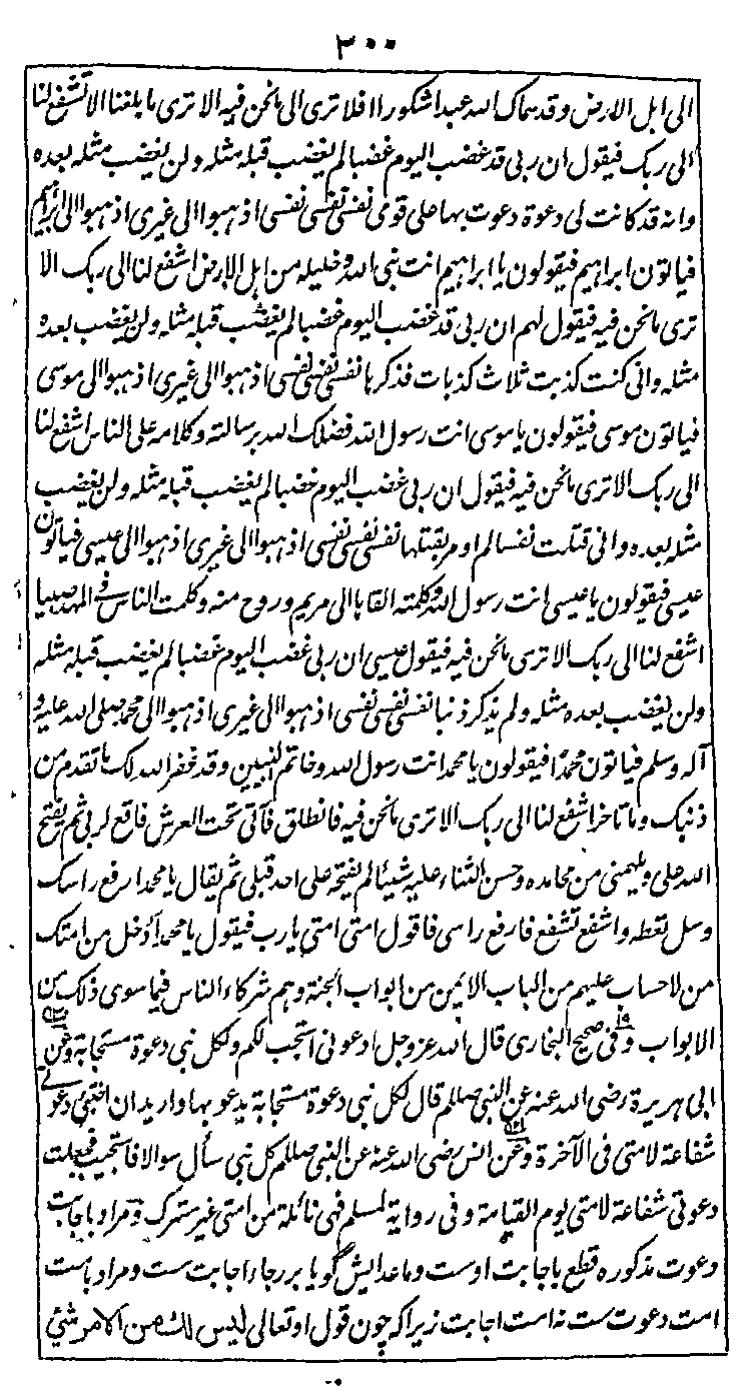 ٣٠٠
الی اہل الارض وقد سماک اللہ عبدا شکورا افلا تری الی ما نحن فیہ الا تری ما بلغنا الا تشفع لنا
الی ربک فیقول ان ربی قد غضب الیوم غضبا لم یغضب قبلہ مثلہ ولن یغضب مثلہ بعدہ
وانہ قد کانت لی دعوة دعوت بہا علی قومی نفسی نفسی نفسی اذہبوا الی غیری اذہبوا الی ابراہیم
فیاتون ابراہیم فیقولون یا ابراہیم انت نبی اللہ وخلیلہ من اہل الارض اشفع لنا الی ربک الا
تری ما نحن فیہ فیقول لہم ان ربی قد غضب الیوم غضبا لم یغضب قبلہ مثلہ ولن یغضب بعدہ
مثلہ وانی کنت کذبت ثلاث کذبات فذکرہا نفسی نفسی نفسی اذہبوا الی غیری اذہبوا الی موسی
فیاتون موسی فیقولون یا موسی انت رسول اللہ فضلک اللہ برسالتہ وکلامہ علی الناس اشفع لنا
الی ربک الا تری ما نحن فیہ فیقول ان ربی غضب الیوم غضبا لم یغضب قبلہ مثلہ ولن یغضب
مثلہ بعدہ وانی قتلت نفسا لم اومر بقتلہا نفسی نفسی نفسی اذہبوا الی غیری اذہبوا الی عیسی فیاتون
عیسی فیقولون یا عیسی انت رسول اللہ وکلمتہ القاہا الی مریم وروح منہ وکلمت الناس فی المہد صبیا
اشفع لنا الی ربک الا تری ما نحن فیہ فیقول عیسی ان ربی غضب الیوم غضبا لم یغضب قبلہ مثلہ
ولن یغضب بعدہ مثلہ ولم یذکر ذنبا نفسی نفسی نفسی اذہبوا الی غیری اذہبوا الی محمد صلی اللہ علیہ و
آلہ وسلم فیاتون محمدًا فیقولون یا محمد انت رسول اللہ وخاتم النبیین وقد غفر اللہ لک ما تقدم من
ذنبک وما تاخر اشفع لنا الی ربک الا تری ما نحن فیہ فانطلق فآتی تحت العرش فاقع لربی ثم یفتح
اللہ علی ویلہمنی من محامدہ وحسن الثناء علیہ شیئا لم یفتحہ علی احد قبلی ثم یقال یا محمد ارفع راسک
وسل تعطہ واشفع تشفع فارفع راسی فاقول امتی امتی یا رب فیقول یا محمد أدخل من امتک
من لا حساب علیہم من الباب الایمن من ابواب الجنة وہم شرکاء الناس فیما سوی ذلک من
الابواب وفی صحیح البخاری قال اللہ عزوجل ادعونی استجب لکم ولکل نبی دعوة مستجابة وعن
ابی ہریرة رضی اللہ عنہ عن النبی صللم قال لکل نبی دعوة مستجابة یدعو بہا وارید ان اختبئ دعوتی
شفاعة لامتی فی الآخرة وعن انس رضی اللہ عنہ عن النبی صللم کل نبی سأل سوالا فاستجیب فجعلت
دعوتی شفاعة لامتی یوم القیامة وفی روایة لمسلم فہی نائلة من امتی غیر مشرک ومراد باجابت
دعوت مذکورہ قطع باجابت اوست وماعدایش گویا بر رجاء اجابت ست ومراد بامت
امت دعوت ست نہ امت اجابت زیراکہ چون قول او تعالی لیس لک من الامر شئ